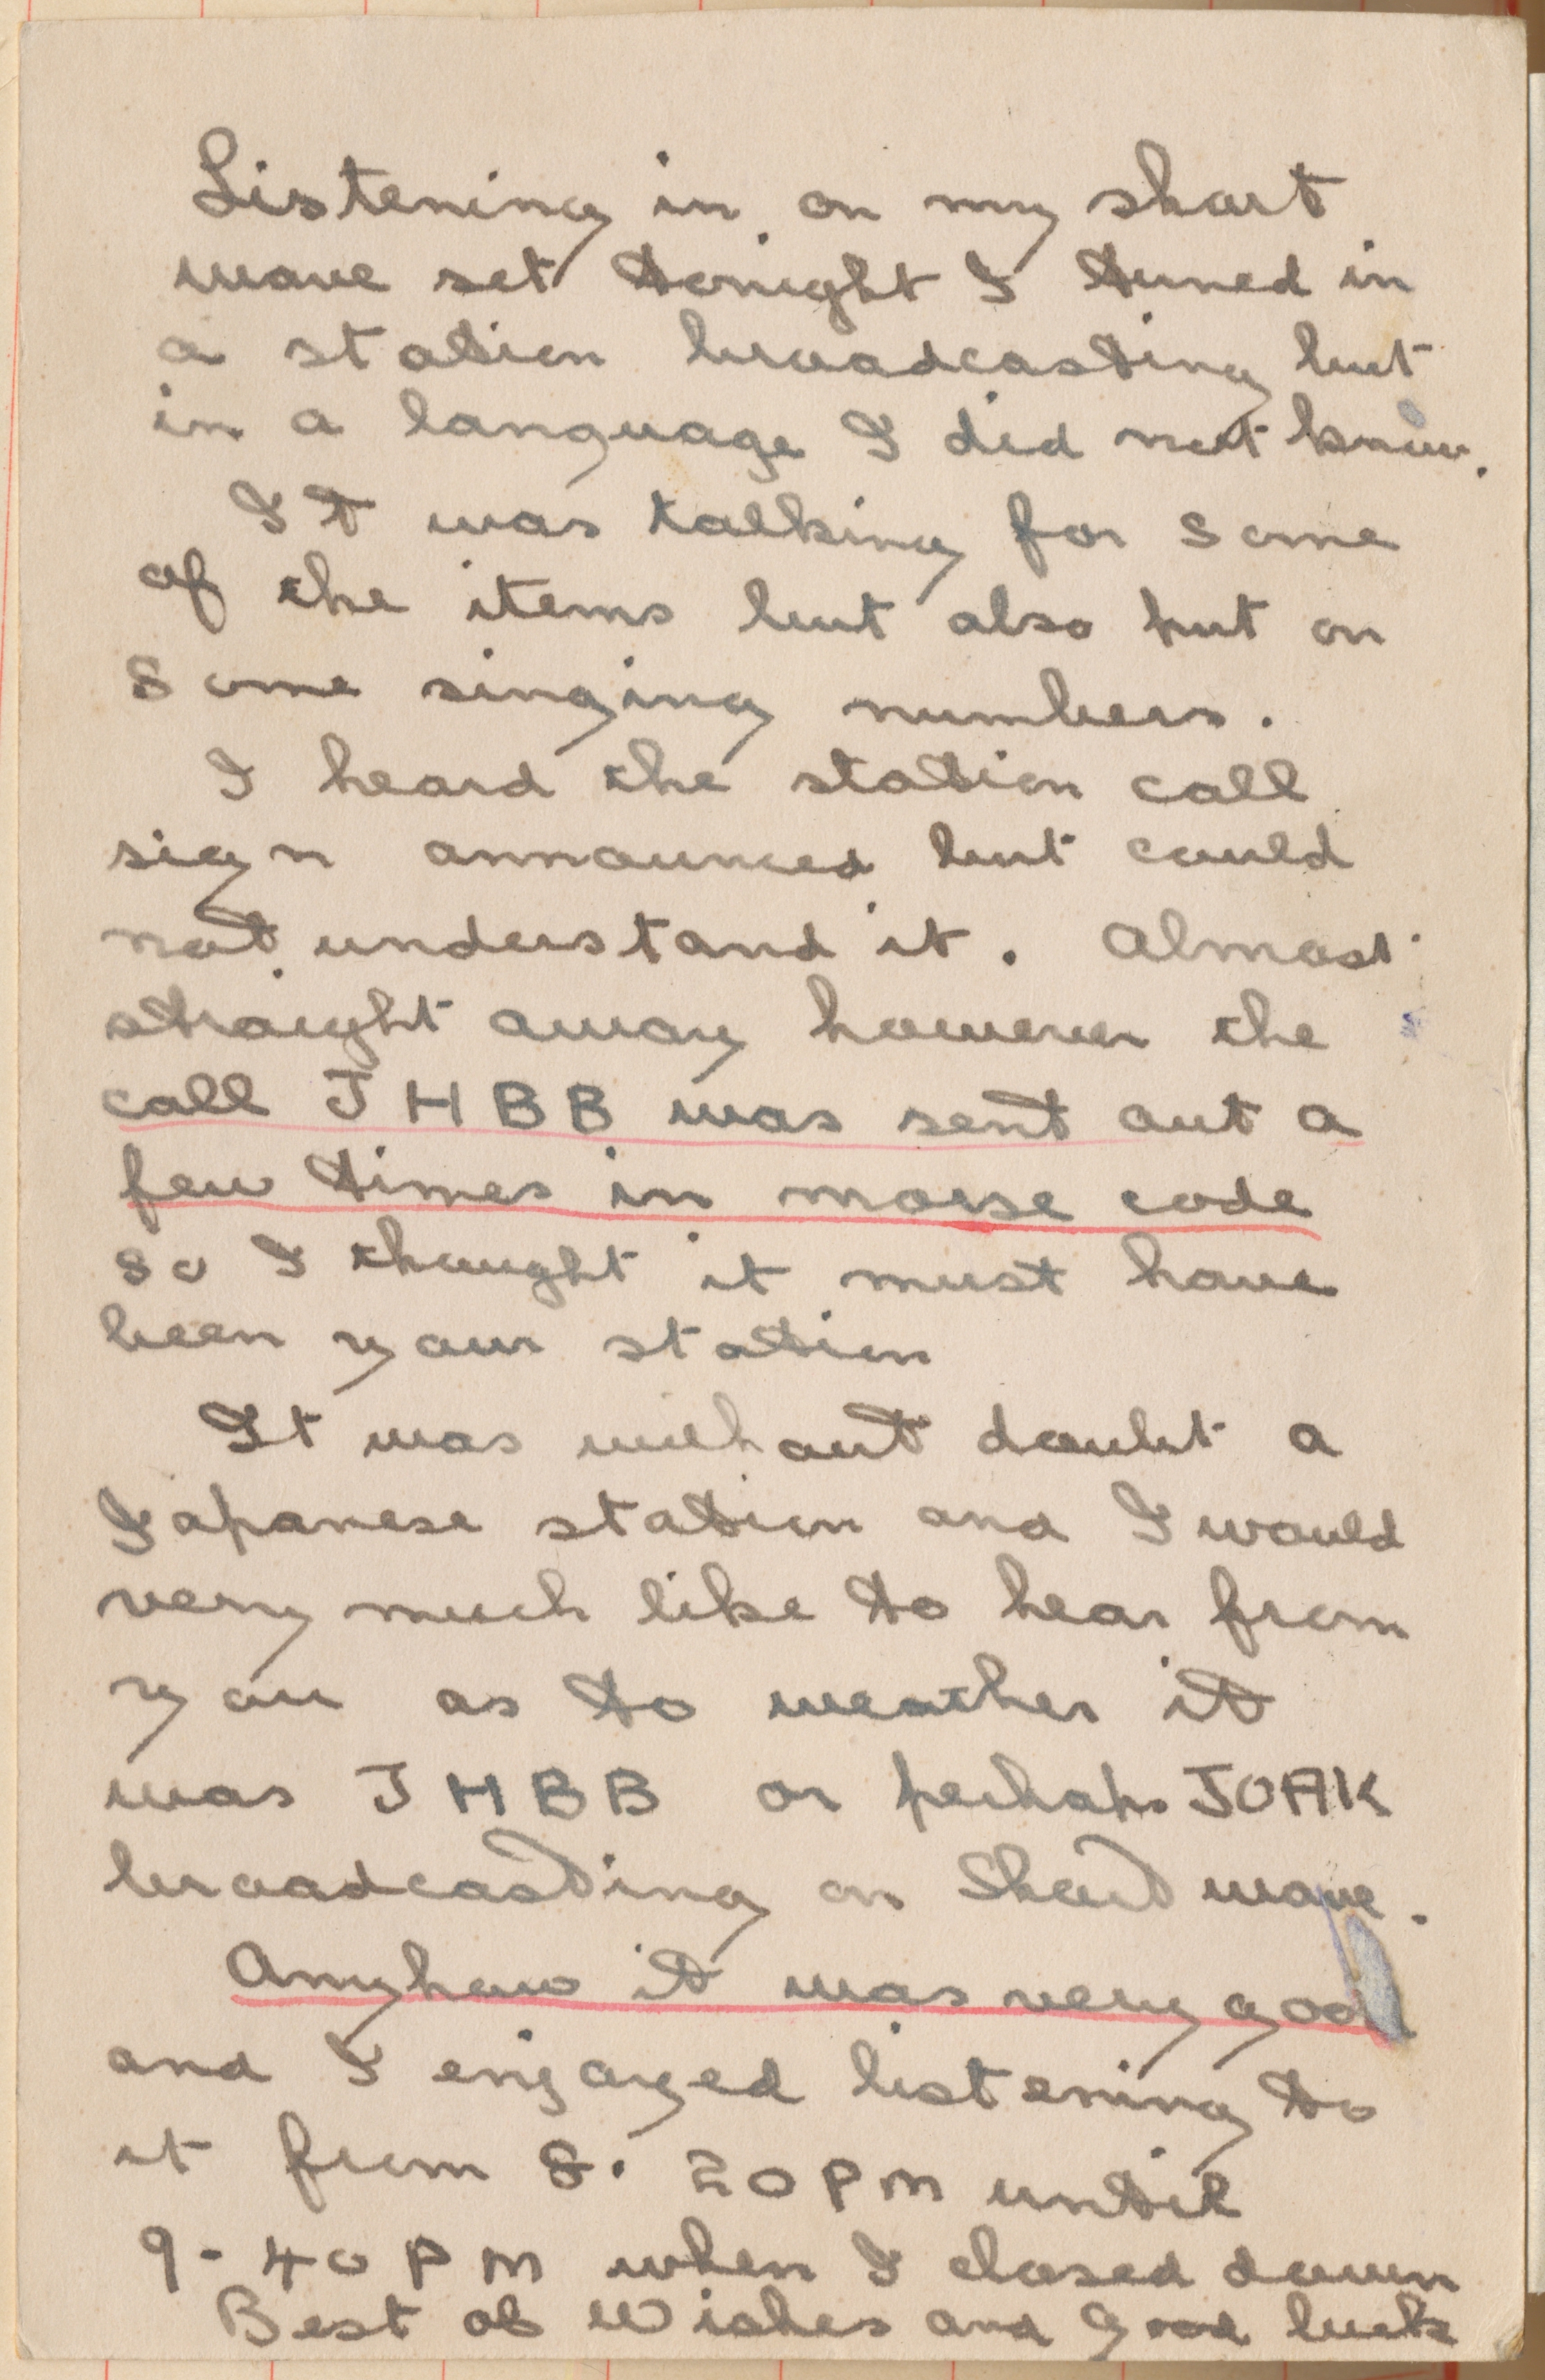 Listening in on my short
wave set tonight I tuned in
a station broadcasting but
in a language I did not know.
It was talking for some
of the items but also put on
some singing numbers.
I heard the station call
sign announced but could
not understand it. Almost
straight away however the
call JHBB was sent out a
few times in morse code
so I thought it must have
been your station
It was without doubt a
Japanese station and I would
very much like to hear from
you as to weather it
was JHBB or perhaps JOAK
broadcasting on Short wave.
Anyhow it was very good
and I enjoyed listening to
it from 8. 20 PM until
9-40 PM when I closed down
Best of Wishes and Good luck